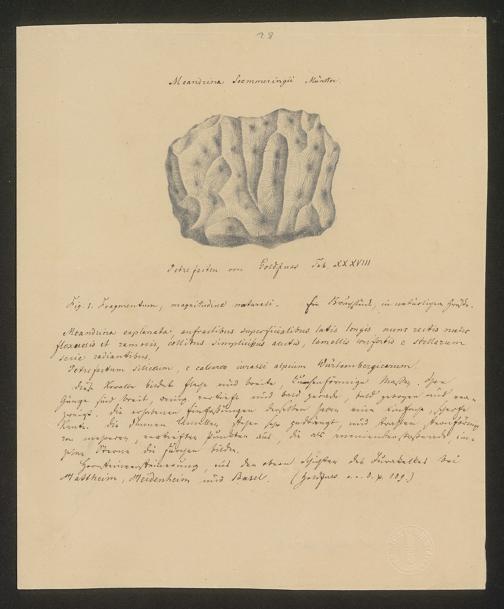 28
Meandrina Soemmeringii Münster.
Petrefacten von Goldfuss Tab. XXXVIII
Fig. 1. Fragmentum, magnitudine naturali. Ein Bruchstück, in natürlicher Größe.
Meandrina explanata, anfractibus superficialibus latis longis nunc rectis nunc
flexuosis et ramosis, collibus simplicibus acutis, lamellis confertis e stellarum
serie radiantibus.
Petrefactum siliceum, e calcareo jurassi alpium Würtembergicarum.
Diese Koralle bildet flache und breite, Massen. Ihre
Gänge sind breit, wenig vertieft und bald gerade, bald gebogen und ver-
zweigt. Die erhabenen Einfassungen derselben haben eine einfache, scharfe
Kante. Die dünnen Lamellen stehen sehr gedrängt, und strahlen
von mehreren, vertieften Punkten aus, die als
Sterne die Furchen bilden.
aus den obern Schichten des Jurakalkes bei
Nattheim, Heidenheim und Basel. (Goldfuss a. a. O. p. 109.)